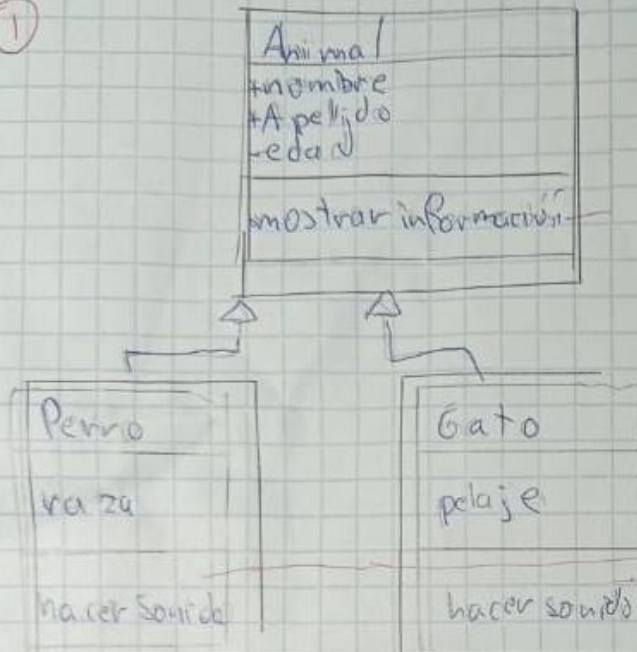 1
Animal
+nombre
+Apellido
-edad
+mostrar información
Perro
raza
hacer sonido
Gato
pelaje
hacer sonido